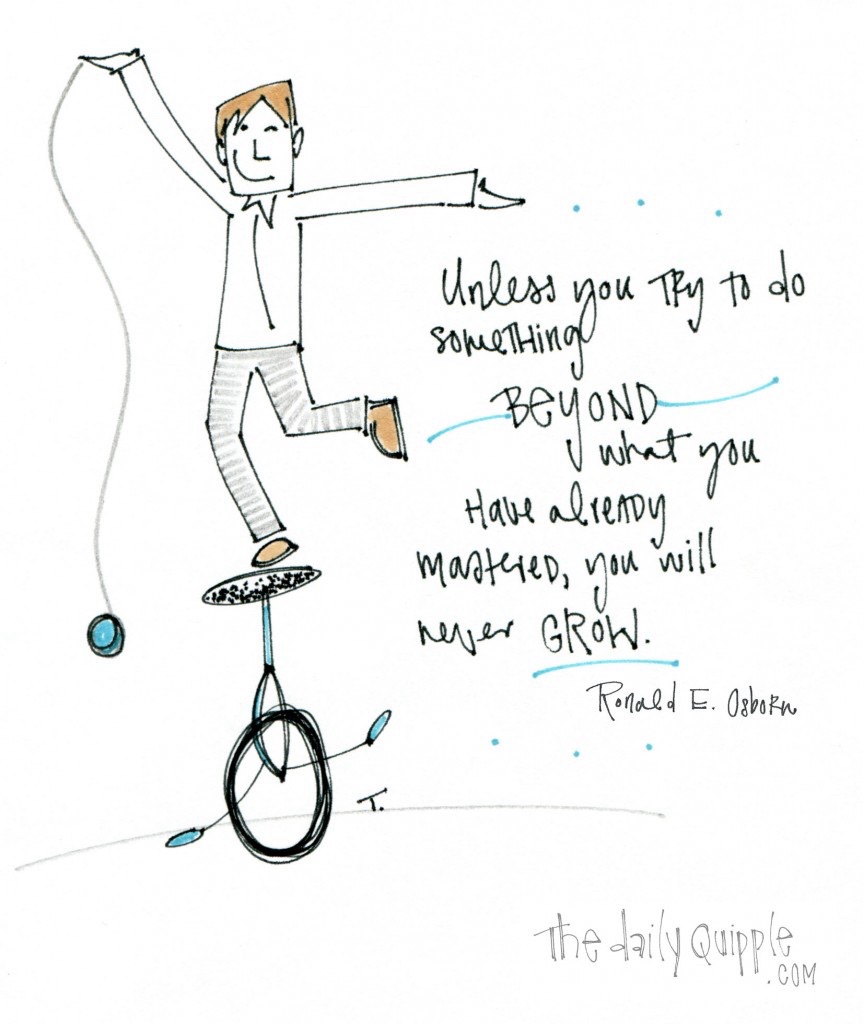 Unless you TRY to do
something
BEYOND
what you
Have already
mastered, you will
never GROW.
Ronald E. Osborn
T.
The daily Quipple
.COM